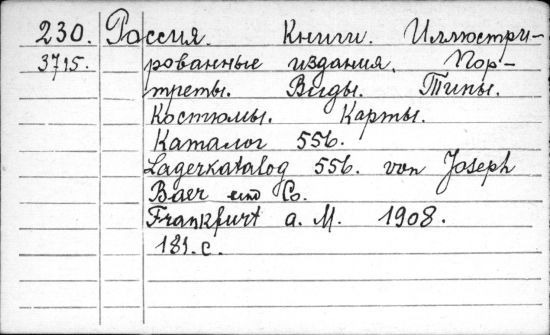 230. Россия. Книги. Иллюстри-
3715. рованные издания. Пор-
треты. Виды. Типы.
Костюмы. Карты.
Каталог 556.
Lagerkatalog 556. von Joseph
Baer und Co.
Frankfurt a. M. 1908.
181. с.